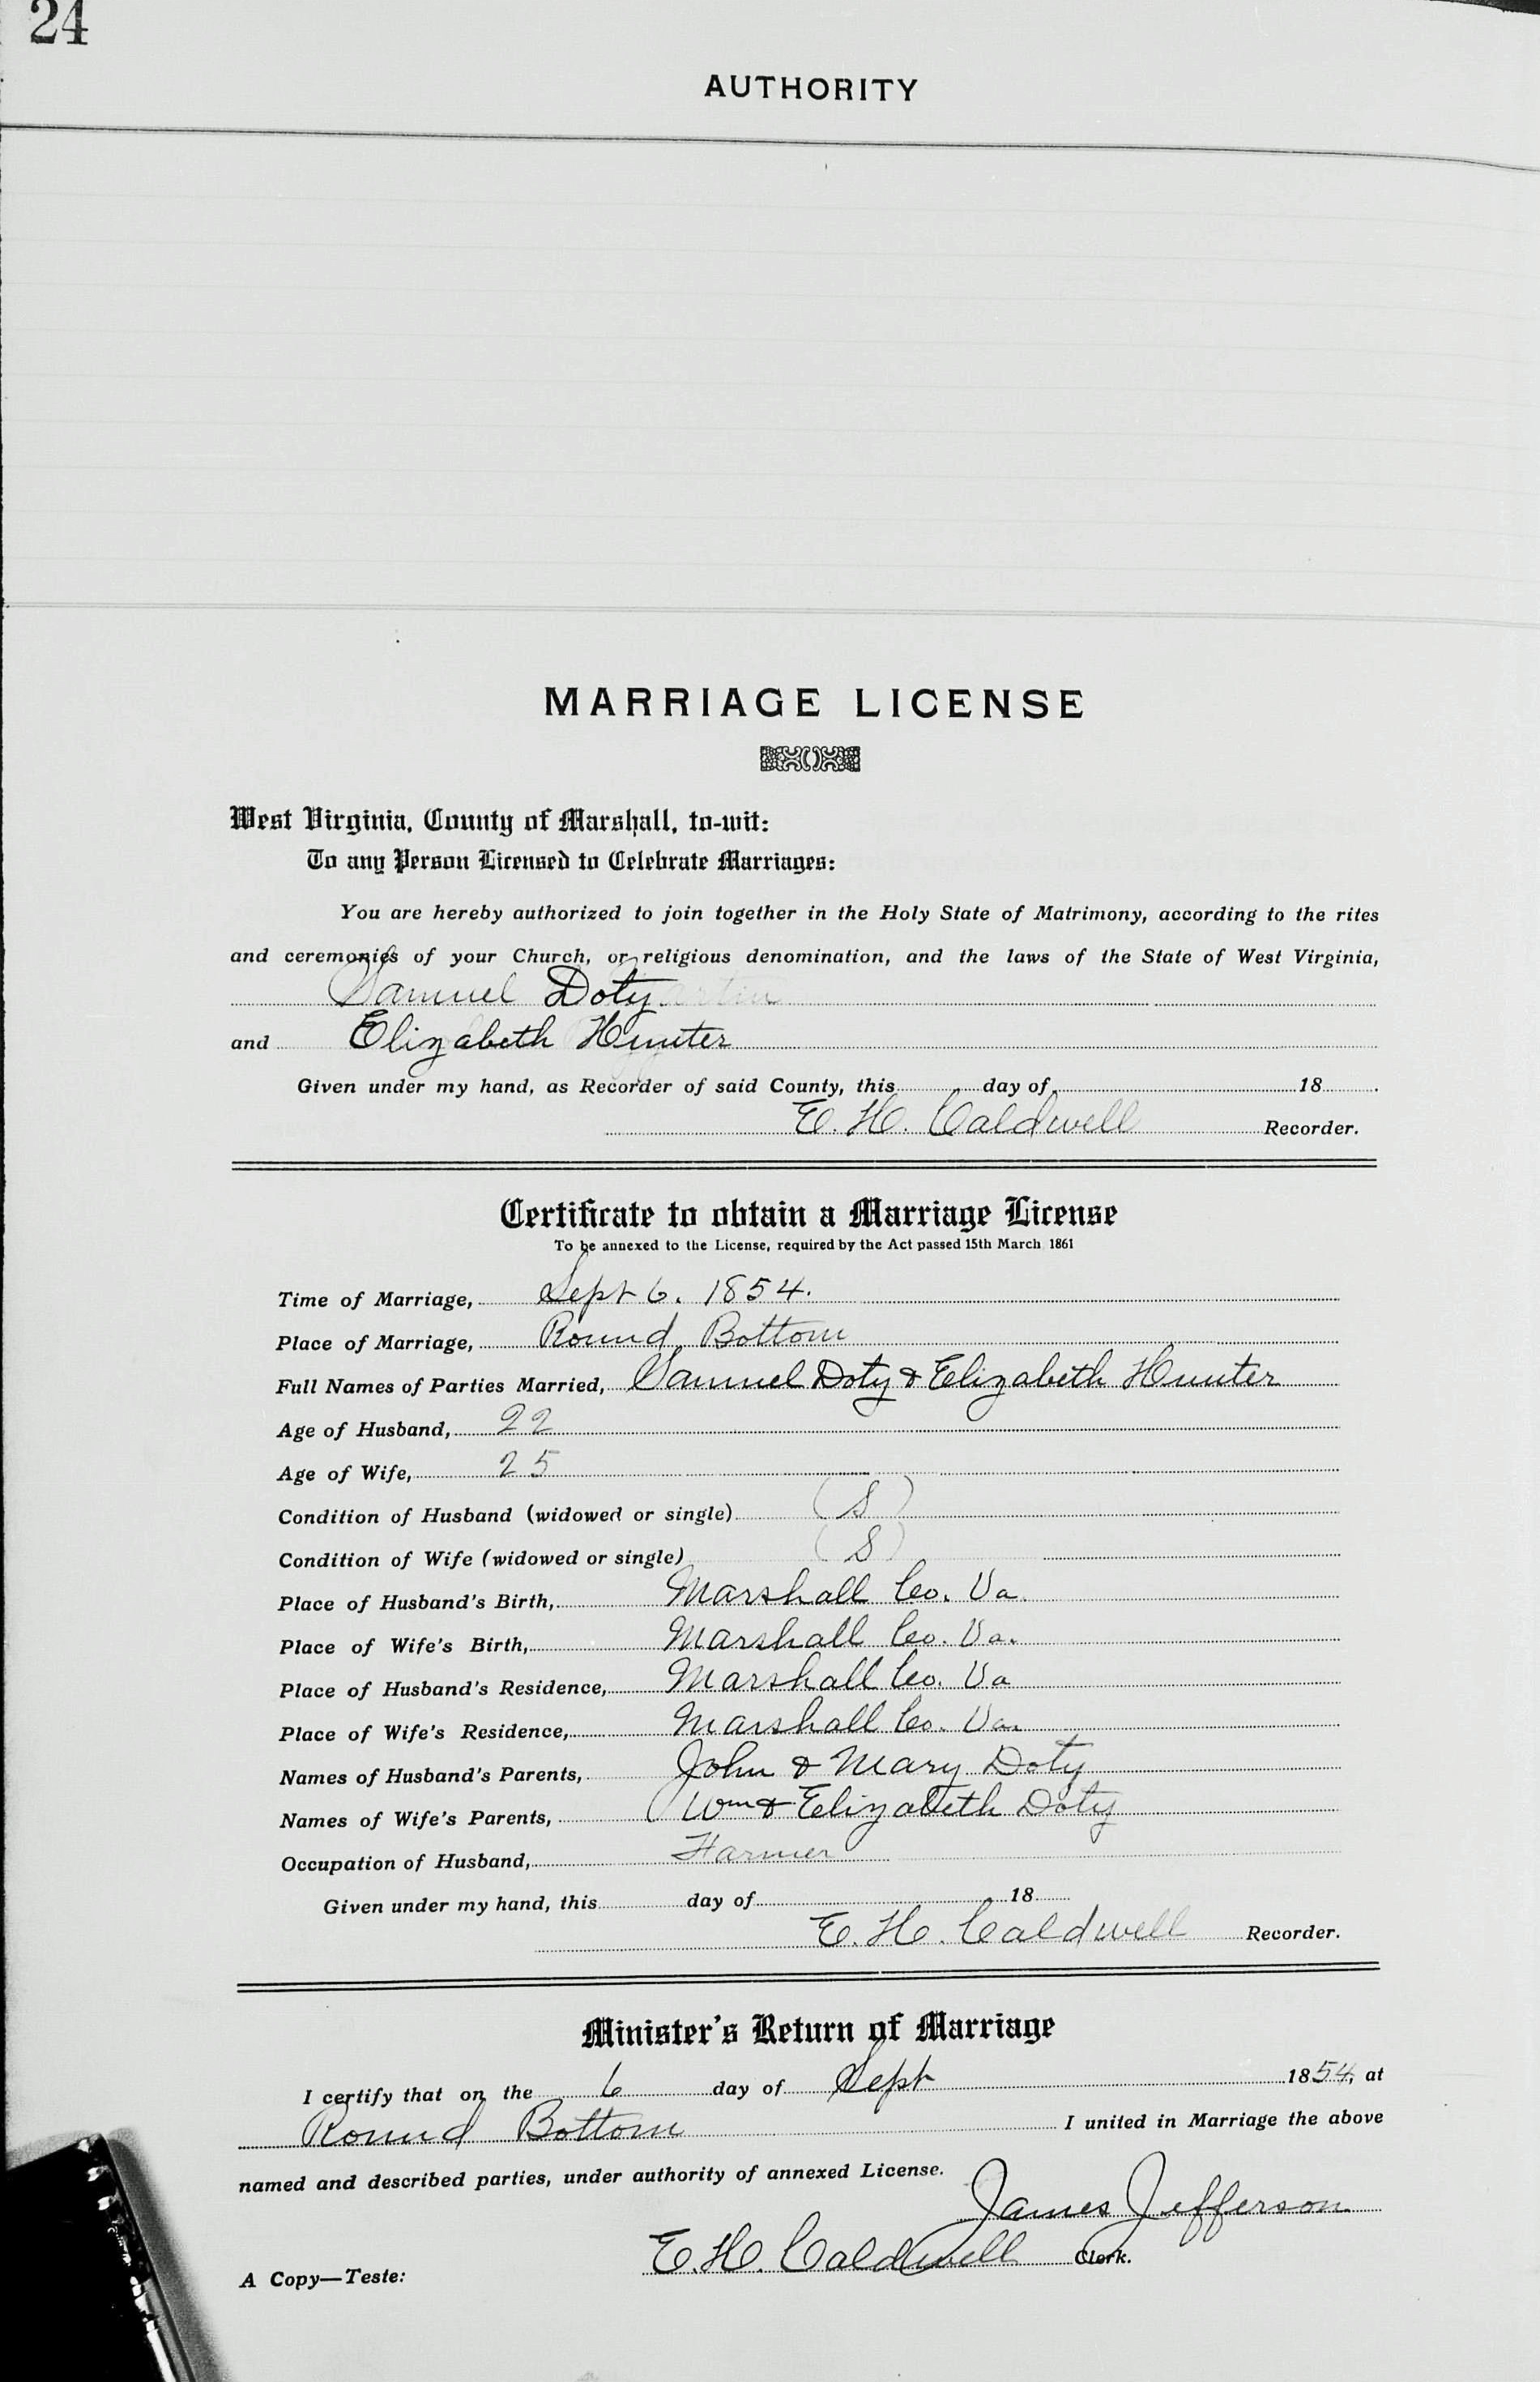 24
AUTHORITY
MARRIAGE LICENSE
West Virginia, County of Marshall, to-wit:
To any Person Licensed to Celebrate Marriages:
You are hereby authorized to join together in the Holy State of Matrimony, according to the rites
and ceremonies of your Church, or religious denomination, and the laws of the State of West Virginia,
Samuel Doty
and Elizabeth Hunter
Given under my hand, as Recorder of said County, this day of 18
E. H. Caldwell Recorder.
Certificate to obtain a Marriage License
To be annexed to the License, required by the Act passed 15th March 1861
Time of Marriage, Sept 6. 1854.
Place of Marriage, Round Bottom
Full Names of Parties Married, Samuel Doty & Elizabeth Hunter
Age of Husband, 22
Age of Wife, 25
Condition of Husband (widowed or single) (S)
Condition of Wife (widowed or single) (S)
Place of Husband's Birth, Marshall Co. Va.
Place of Wife's Birth, Marshall Co. Va.
Place of Husband's Residence, Marshall Co. Va
Place of Wife's Residence, Marshall Co. Va.
Names of Husband's Parents, John & Mary Doty
Names of Wife's Parents, Wm & Elizabeth Doty
Occupation of Husband, Farmer
Given under my hand, this day of 18
E. H. Caldwell Recorder.
Minister's Return of Marriage
I certify that on the 6 day of Sept 1854, at
Round Bottom I united in Marriage the above
named and described parties, under authority of annexed License.
James Jefferson
A Copy—Teste: E. H. Caldwell Clerk.